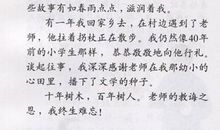 些故事有如春雨点点，滋润着我。
有一年我回家乡去，在村边遇到了老
师，他拄着拐杖正在散步。我仍然像40年
前的小学生那样，恭恭敬敬地向他行礼。
谈起往事，我深深感谢老师在我那幼小的
心田里，播下了文学的种子。
十年树木，百年树人。老师的教诲之
恩，我终生难忘！